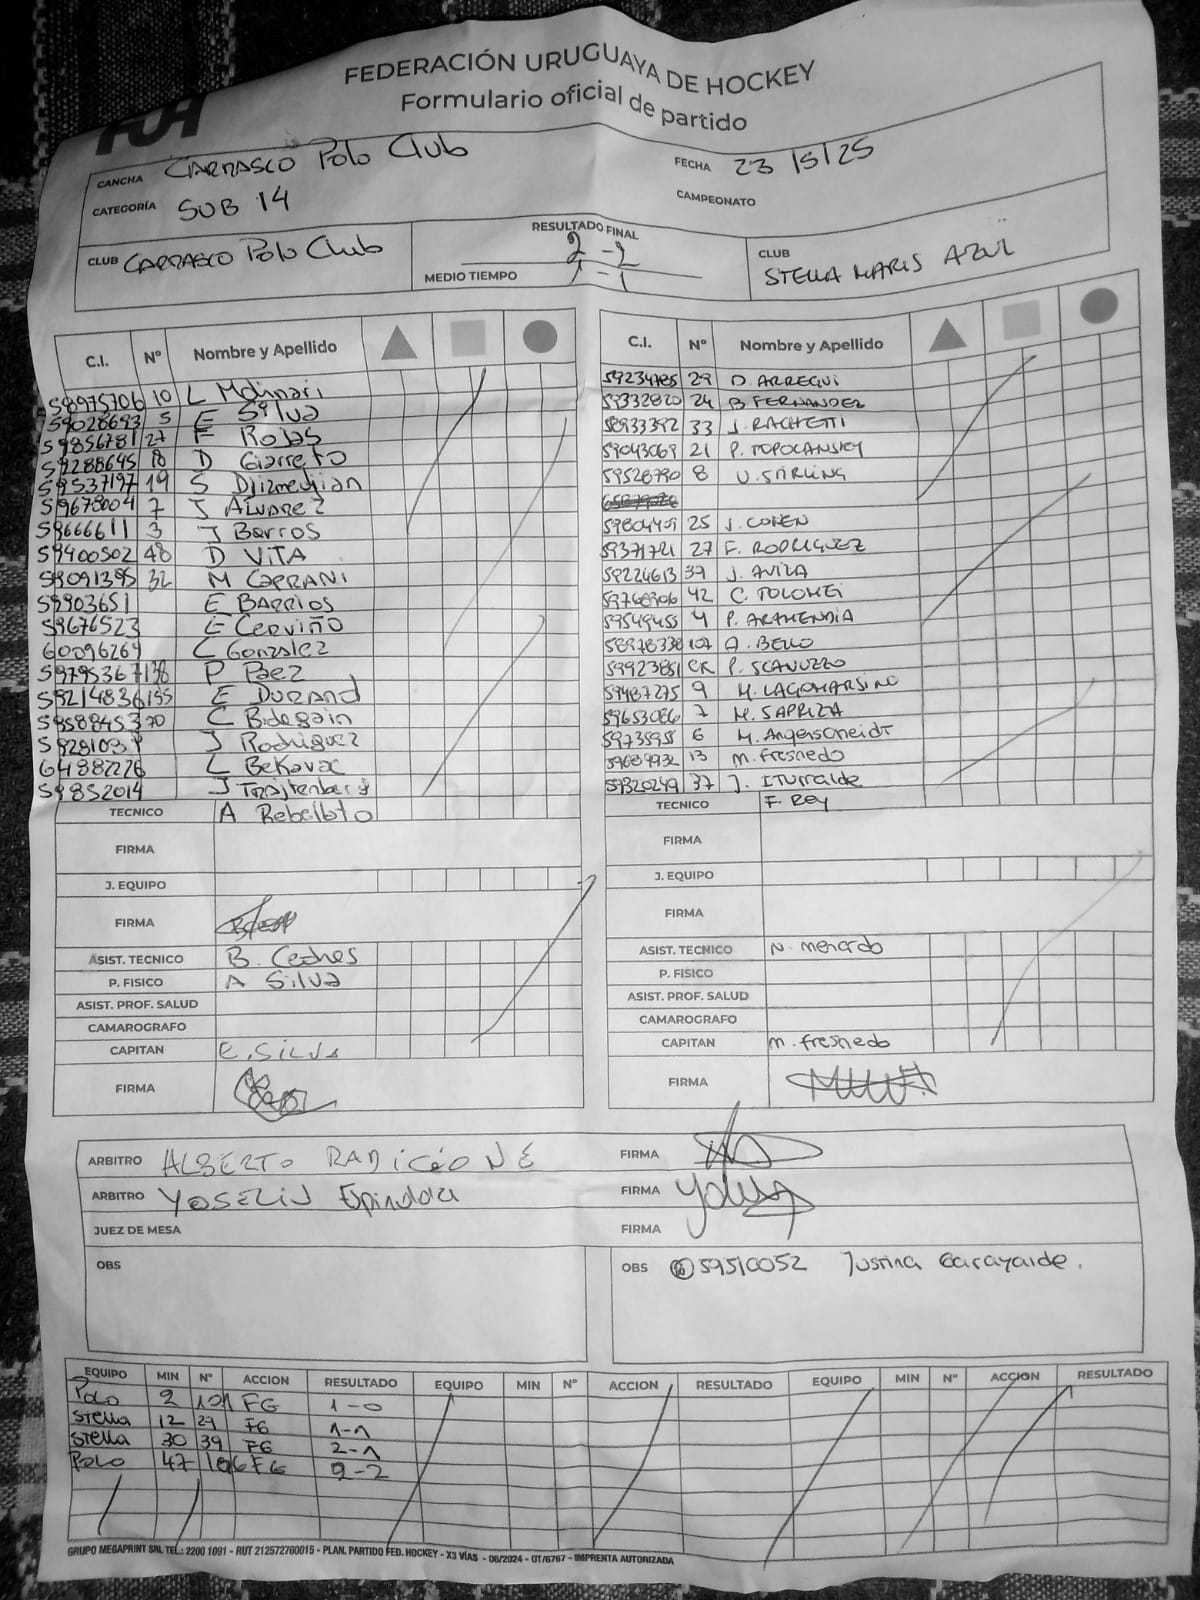 FUH
FEDERACIÓN URUGUAYA DE HOCKEY
Formulario oficial de partido
CANCHA CARRASCO Polo Club FECHA 23/5/25
CATEGORÍA SUB 14 CAMPEONATO
CLUB CARRASCO Polo Club
RESULTADO FINAL 2-2
MEDIO TIEMPO 1-1
CLUB STELLA MARIS AZUL
C.I. Nº Nombre y Apellido
58975706 10 L Molinari
59028693 5 E Silva
59856781 27 F Robs
59288645 18 D Giarreto
59537197 19 S Djizmedjian
59678004 7 J Alvarez
59666611 3 J Barros
59400502 48 D VITA
59091395 32 M CAPRANI
59903651 E BARRIOS
59676523 E Cerviño
60096269 C Gonzalez
59795367 138 P Paez
59214836 155 E DURAND
59588453 70 C Bidegain
5928103 J Rodriguez
64882226 L Bekavac
59852014 J Trajtenberg
TECNICO A Rebelbto
FIRMA
J. EQUIPO
FIRMA
ASIST. TECNICO B. Cedres
P. FISICO A Silva
ASIST. PROF. SALUD
CAMAROGRAFO
CAPITAN E. SILVA
FIRMA
C.I. Nº Nombre y Apellido
59234785 29 D. ARREGUI
59332820 24 B. FERNANDEZ
58933392 33 J. RACHETTI
59043069 21 P. TOPOLANSKY
59528790 8 U. STIRLING
59804409 25 J. COHEN
59371721 27 F. RODRIGUEZ
59224613 39 J. AVILA
59768906 42 C. TOLOMEI
59549455 4 P. ARAMENDIA
58978338 107 A. BELLO
59923851 CR P. SCAVUZZO
59487275 9 M. LAGOMARSINO
59653086 7 M. SAPRIZA
59735955 6 M. Angerscheidt
59689932 13 M. Fresnedo
59320249 37 J. ITURRALDE
TECNICO F. Rey
FIRMA
J. EQUIPO
FIRMA
ASIST. TECNICO N. Menardo
P. FISICO
ASIST. PROF. SALUD
CAMAROGRAFO
CAPITAN M. Fresnedo
FIRMA
ARBITRO ALBERTO RADICIONE FIRMA
ARBITRO YOSELIN Espindola FIRMA
JUEZ DE MESA FIRMA
OBS
OBS 59510052 Justina Garayalde.
EQUIPO MIN Nº ACCION RESULTADO EQUIPO MIN Nº ACCION RESULTADO EQUIPO MIN Nº ACCION RESULTADO
POLO 2 101 FG 1-0
Stella 12 29 FG 1-1
Stella 30 39 FG 2-1
POLO 47 FG 2-2
GRUPO MEGAPRINT SRL TEL.: 2200 1091 - RUT 212572760015 - PLAN. PARTIDO FED. HOCKEY - X3 VÍAS - 06/2024 - OT/6767 - IMPRENTA AUTORIZADA